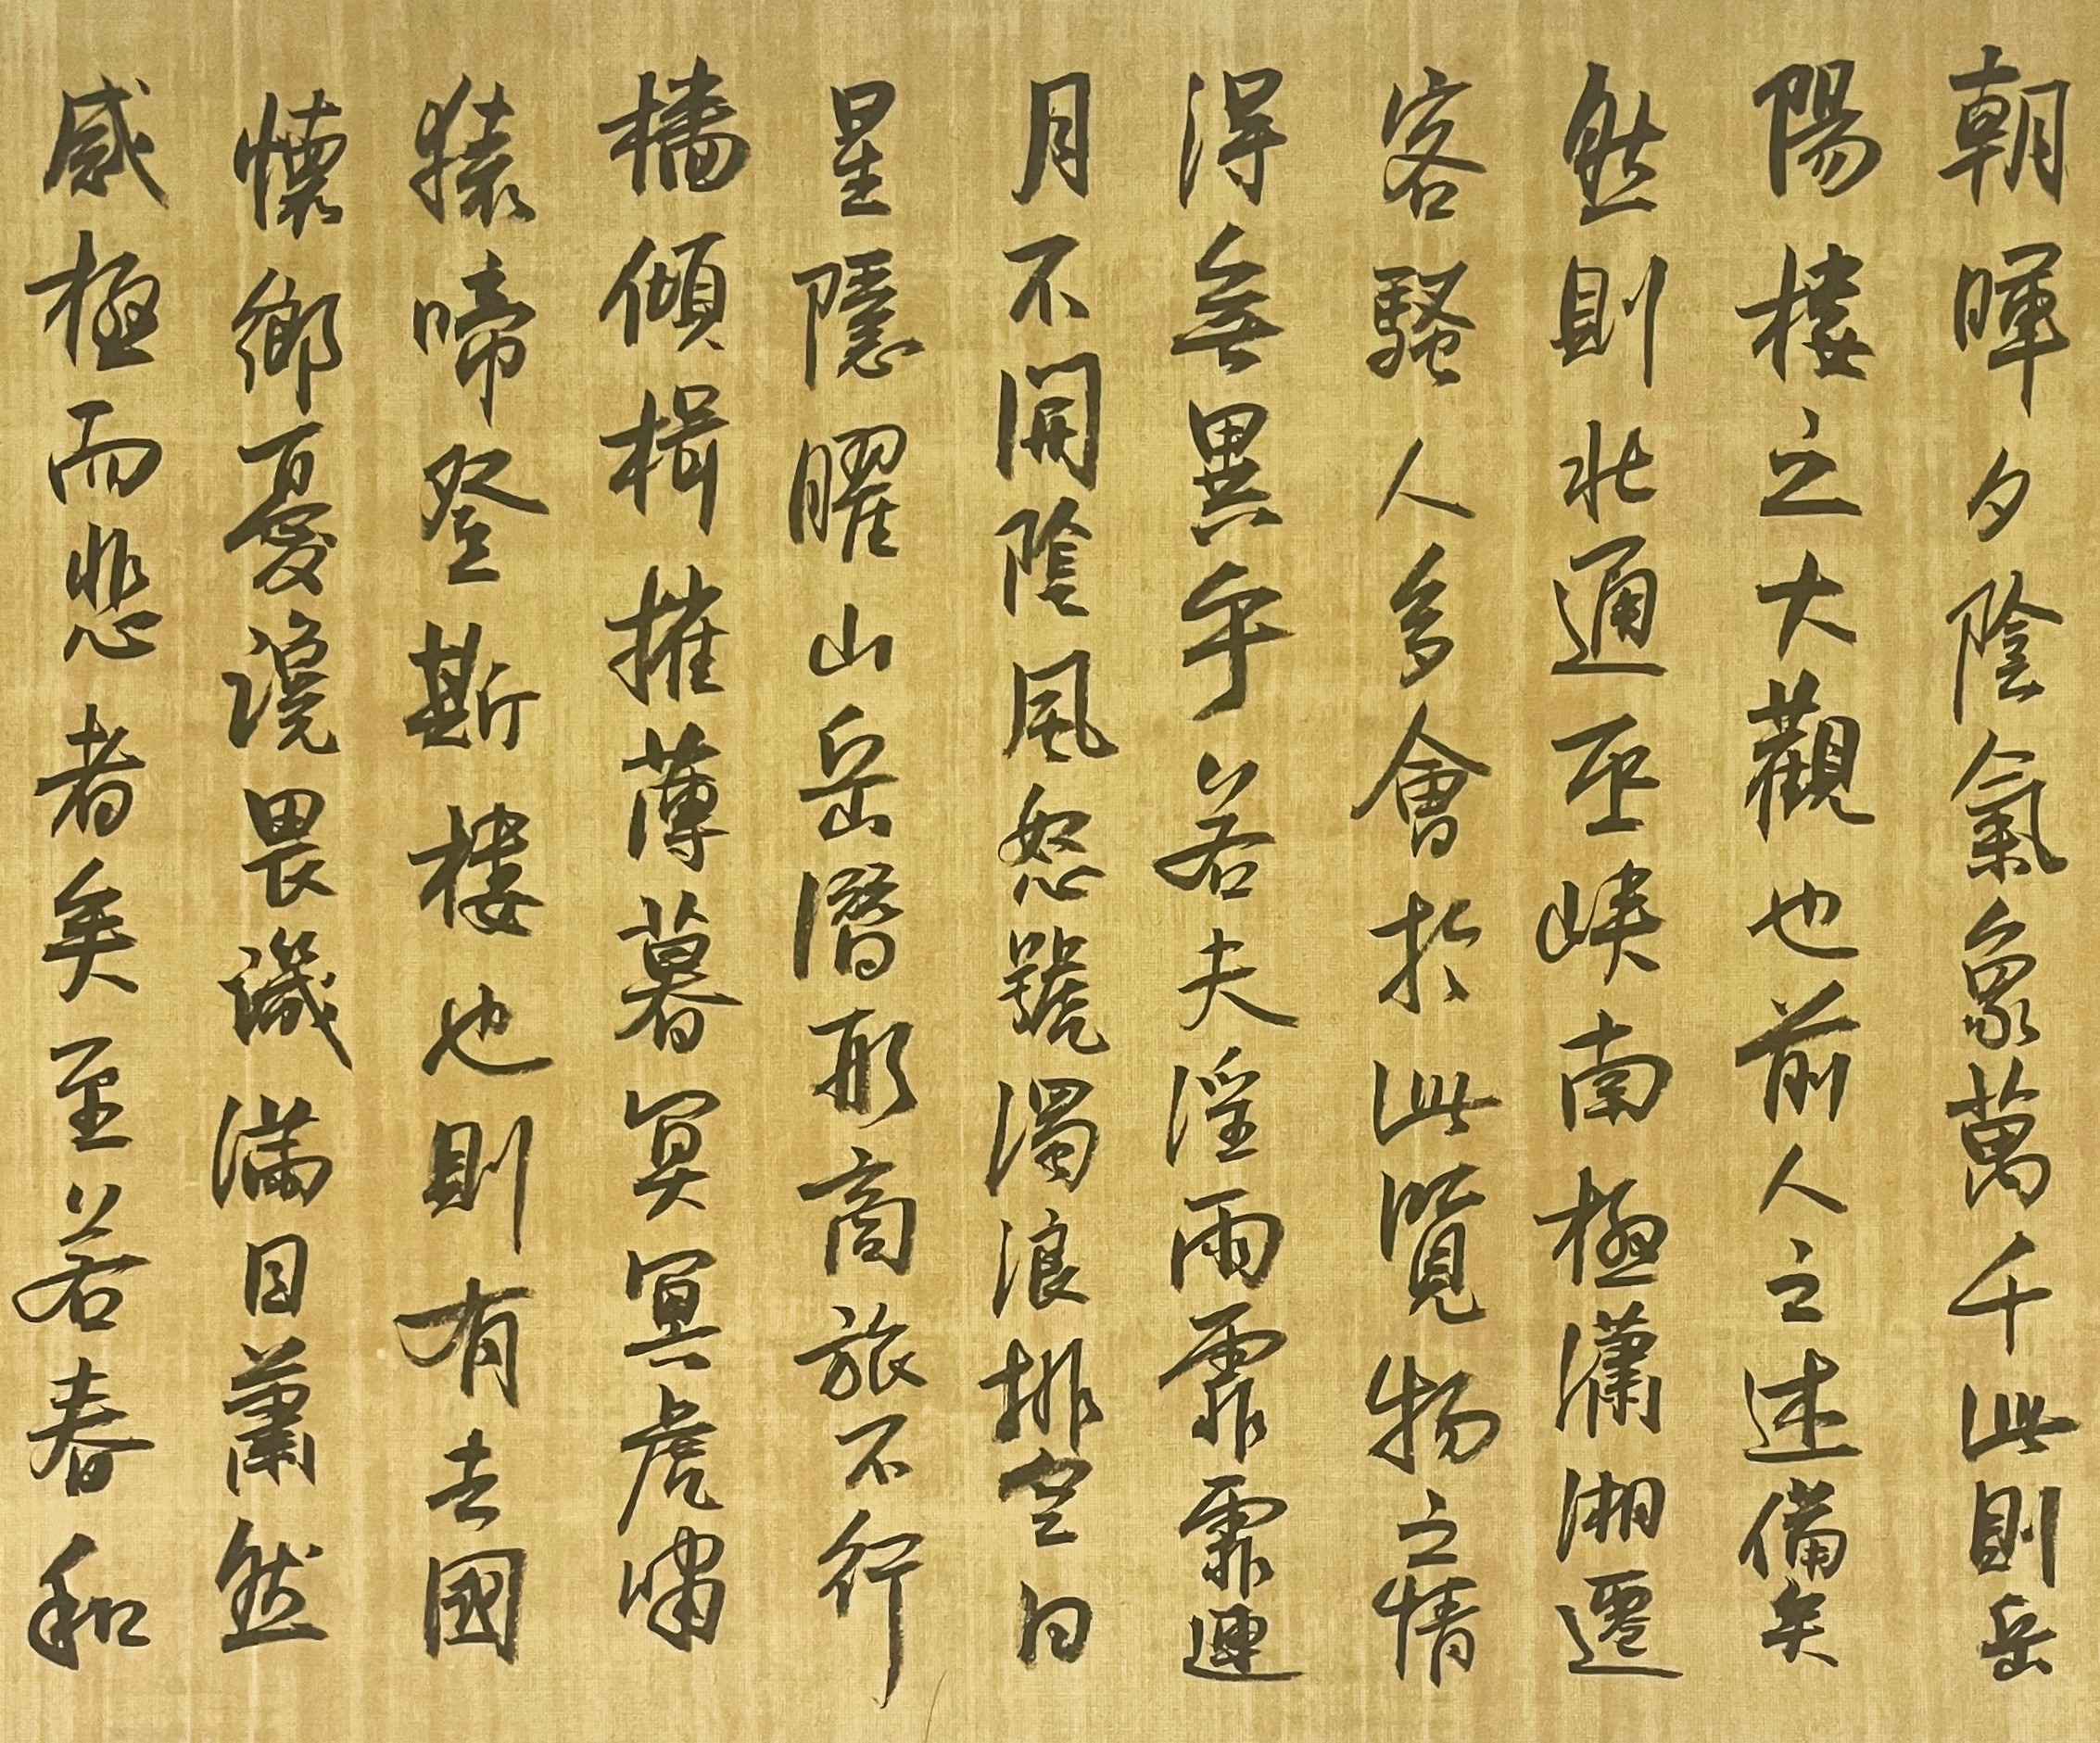 朝暉夕陰氣象萬千此則岳
陽樓之大觀也前人之述備矣
然則北通巫峽南極瀟湘遷
客騷人多會於此覽物之情
得無異乎若夫淫雨霏霏連
月不開陰風怒號濁浪排空日
星隱曜山岳潛形商旅不行
檣傾楫摧薄暮冥冥虎嘯
猿啼登斯樓也則有去國
懷鄉憂讒畏譏滿目蕭然
感極而悲者矣至若春和